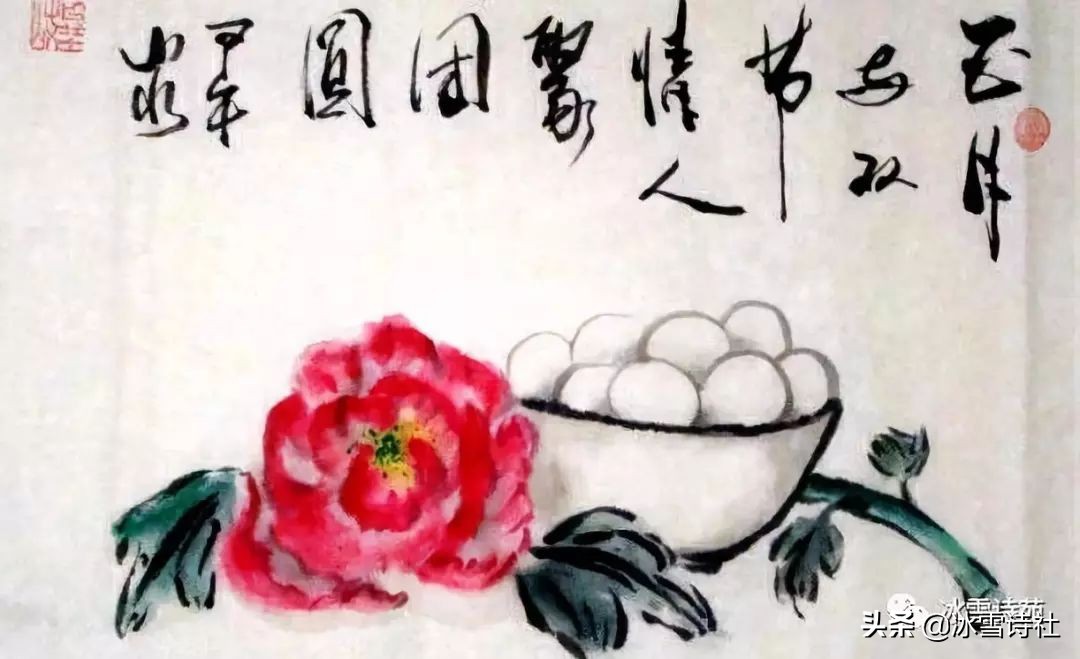 正月
双
节
情人
聚
团
圆
甲午
冰雪诗苑
头条 @冰雪诗社